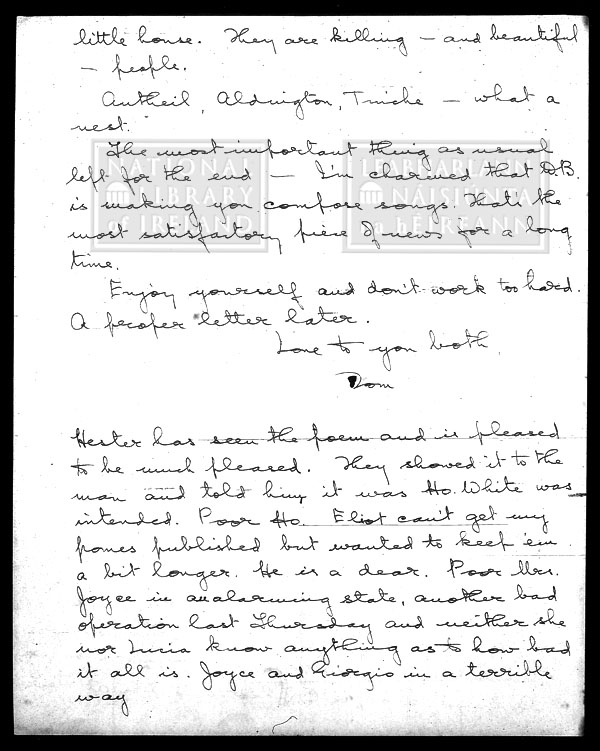 little house. They are killing — and beautiful
— people.
Antheil, Aldington, Tniche — what a
nest.
The most important thing as usual
left for the end — I'm charmed that D.B.
is making you compose songs. That's the
most satisfactory piece of news for a long
time.
Enjoy yourself and don't work too hard.
A proper letter later.
Love to you both,
Tom
Hester has seen the poem and is pleased
to be much pleased. They showed it to the
man and told him it was Ho. White was
intended. Poor Ho. Eliot can't get my
pomes published but wanted to keep 'em
a bit longer. He is a dear. Poor Mrs.
Joyce in an alarming state, another bad
operation last Thursday and neither she
nor Lucia know anything as to how bad
it all is. Joyce and Giorgio in a terrible
way
NATIONAL LIBRARY of IRELAND
LEABHARLANN NÁISIÚNTA na hÉIREANN